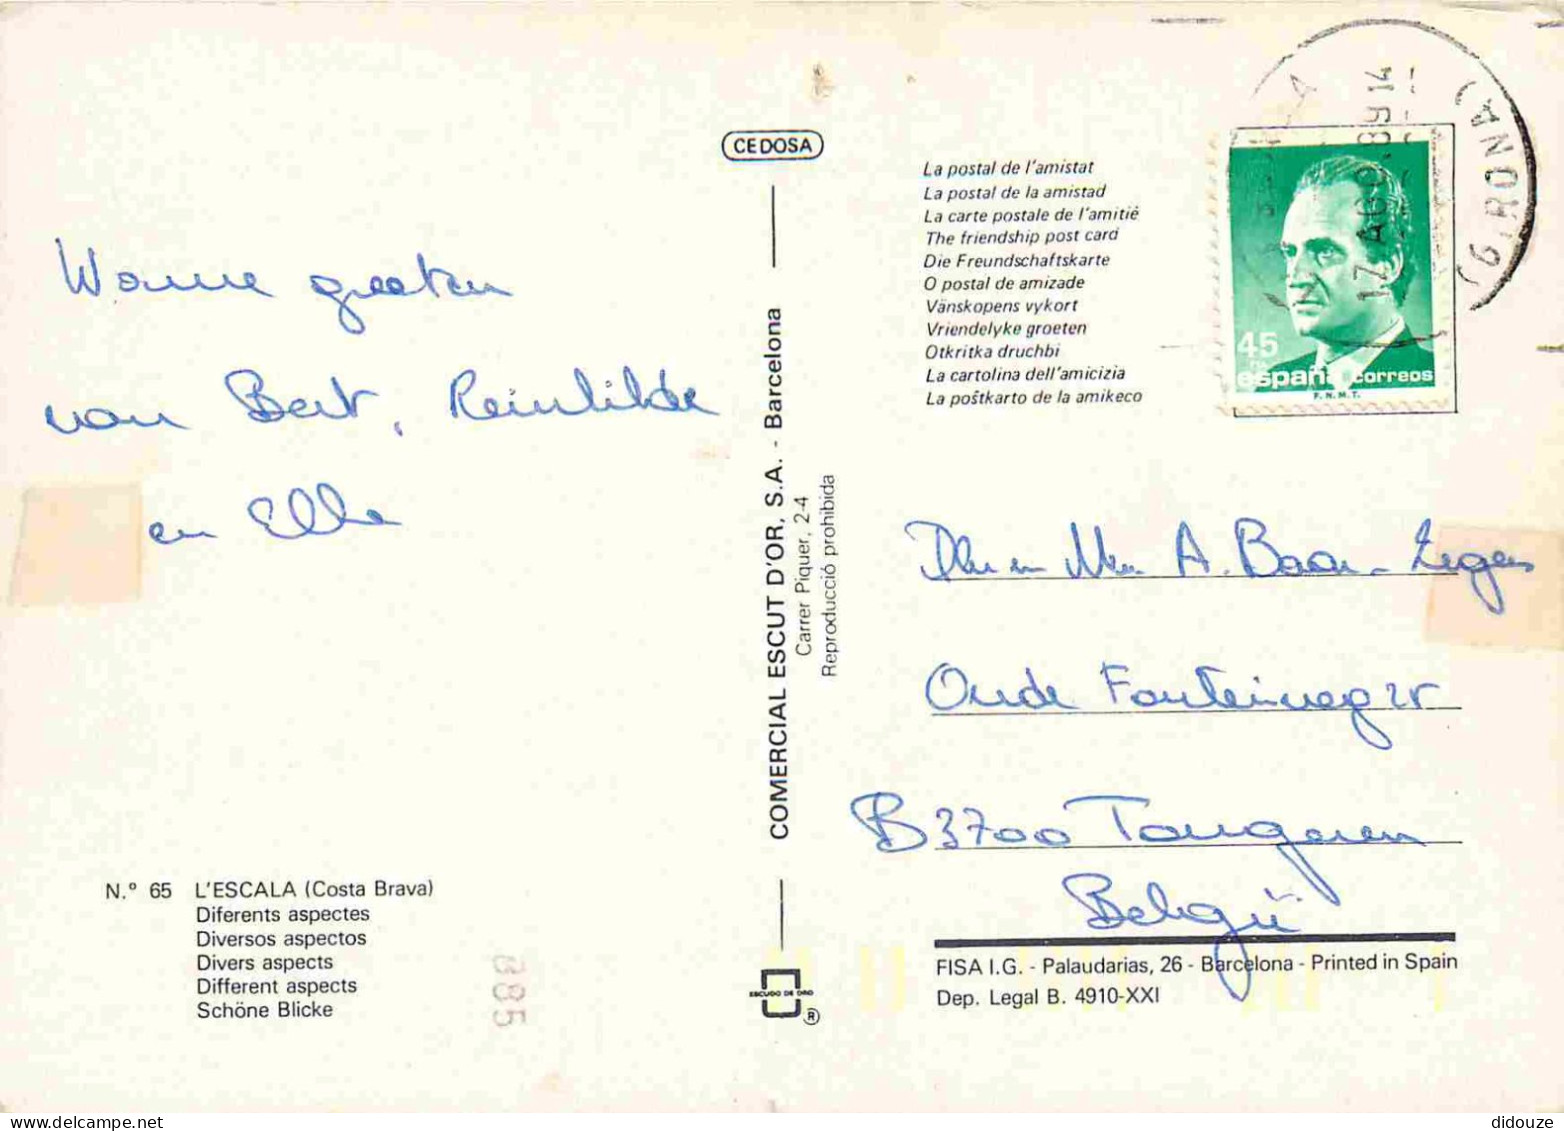 Warme groeten
van Bert, Reinhilde
en Elke
N.º 65 L'ESCALA (Costa Brava)
Diferents aspectes
Diversos aspectos
Divers aspects
Different aspects
Schöne Blicke
885
CEDOSA
COMERCIAL ESCUT D'OR, S.A. - Barcelona
Carrer Piquer, 2-4
Reproducció prohibida
ESCUDO DE ORO
®
La postal de l'amistat
La postal de la amistad
La carte postale de l'amitié
The friendship post card
Die Freundschaftskarte
O postal de amizade
Vänskopens vykort
Vriendelyke groeten
Otkritka druchbi
La cartolina dell'amicizia
La poštkarto de la amikeco
17 AGO. 89 14
(GIRONA)
45
españa correos
F.N.M.T.
Dhr en Mevr A. Baar-
Oude Fonteinweg
B3700 Tongeren
België
FISA I.G. - Palaudarias, 26 - Barcelona - Printed in Spain
Dep. Legal B. 4910-XXI
didouze